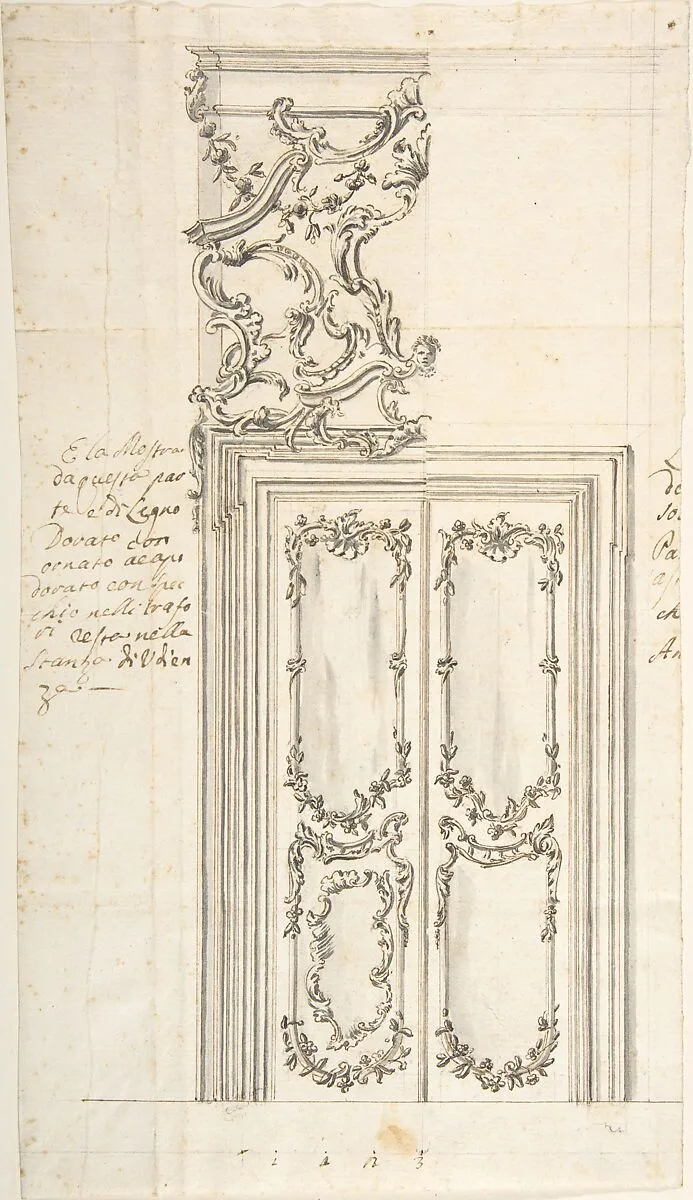 E la Mostra
da questa par
te e di Legno
Dorato con
ornato a capi
dorato con spec
chio nelli trafo
ri resta nella
Stanza di Udien
za
L
de
so
Pa
a
ch
An
1 1 2 3